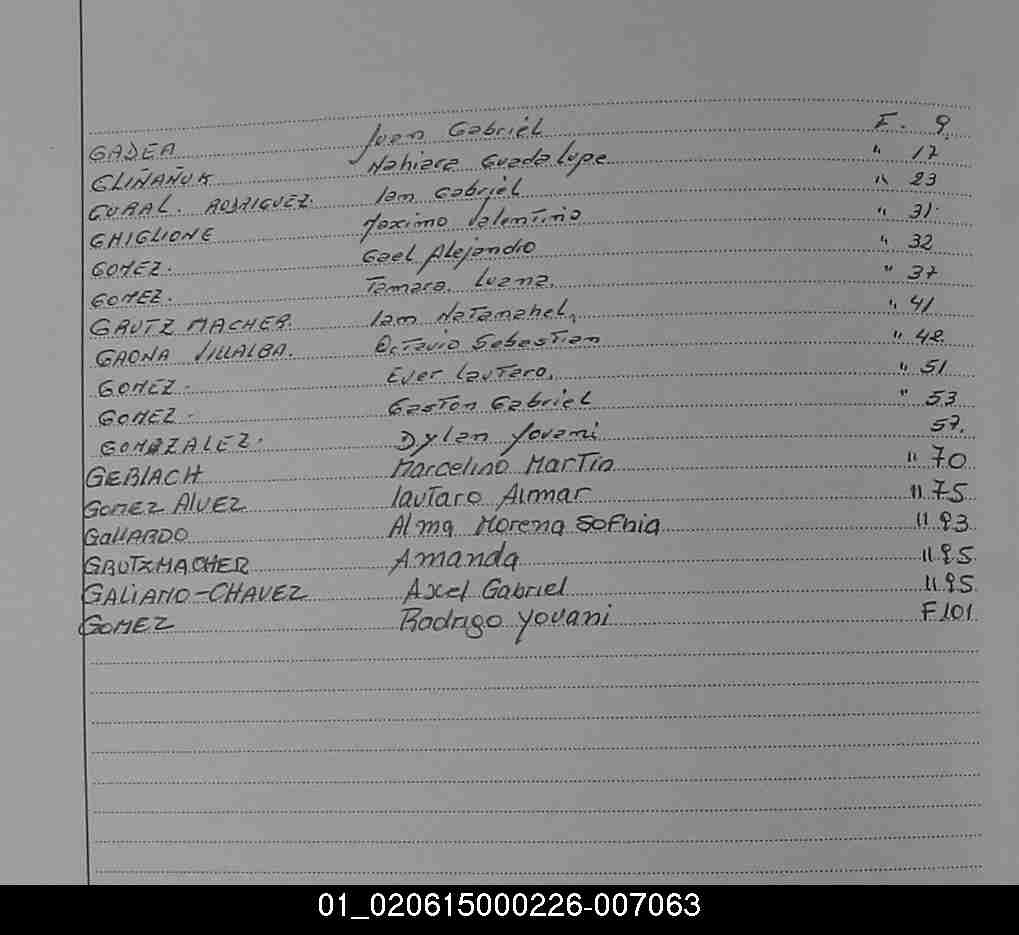 GADEA Juan Gabriel F. 9.
GLIÑAÑUK Nahiara Guadalupe " 17
GURAL. RODRIGUEZ. Iam Gabriel " 23
GHIGLIONE Maximo Valentino " 31.
GOMEZ. Gael Alejandro " 32
GOMEZ. Tamara. Luana. " 37
GRUTZ MACHER. Iam Natanahel. " 41
GAONA VILLALBA. Octavio Sebastian " 48.
GOMEZ. Ever Lautaro. " 51
GOMEZ. Gaston Gabriel " 53
GONZALEZ. Dylan Yovani 57.
GERLACH Marcelino Martin " 70
GOMEZ ALVEZ lautaro Aimar " 75
GallARDO Alma Morena Sofhia " 93
GRUTZMACHER Amanda " 95
GALiANO-CHAVEZ Axel Gabriel " 95
GOMEZ Rodrigo yovani F 101
01_020615000226-007063